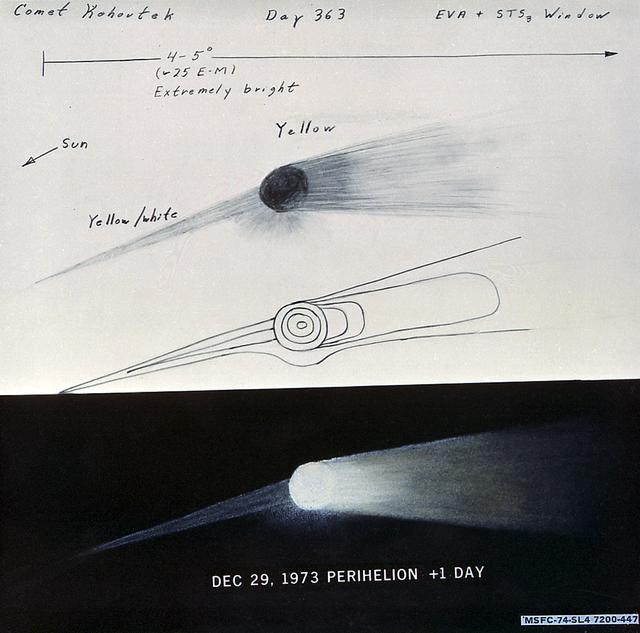 Comet Kohoutek Day 363 EVA + STS3 Window
4-5°
(~25 E-M)
Extremely bright
Yellow
Sun
Yellow/white
DEC 29, 1973 PERIHELION +1 DAY
MSFC-74-SL4 7200-447